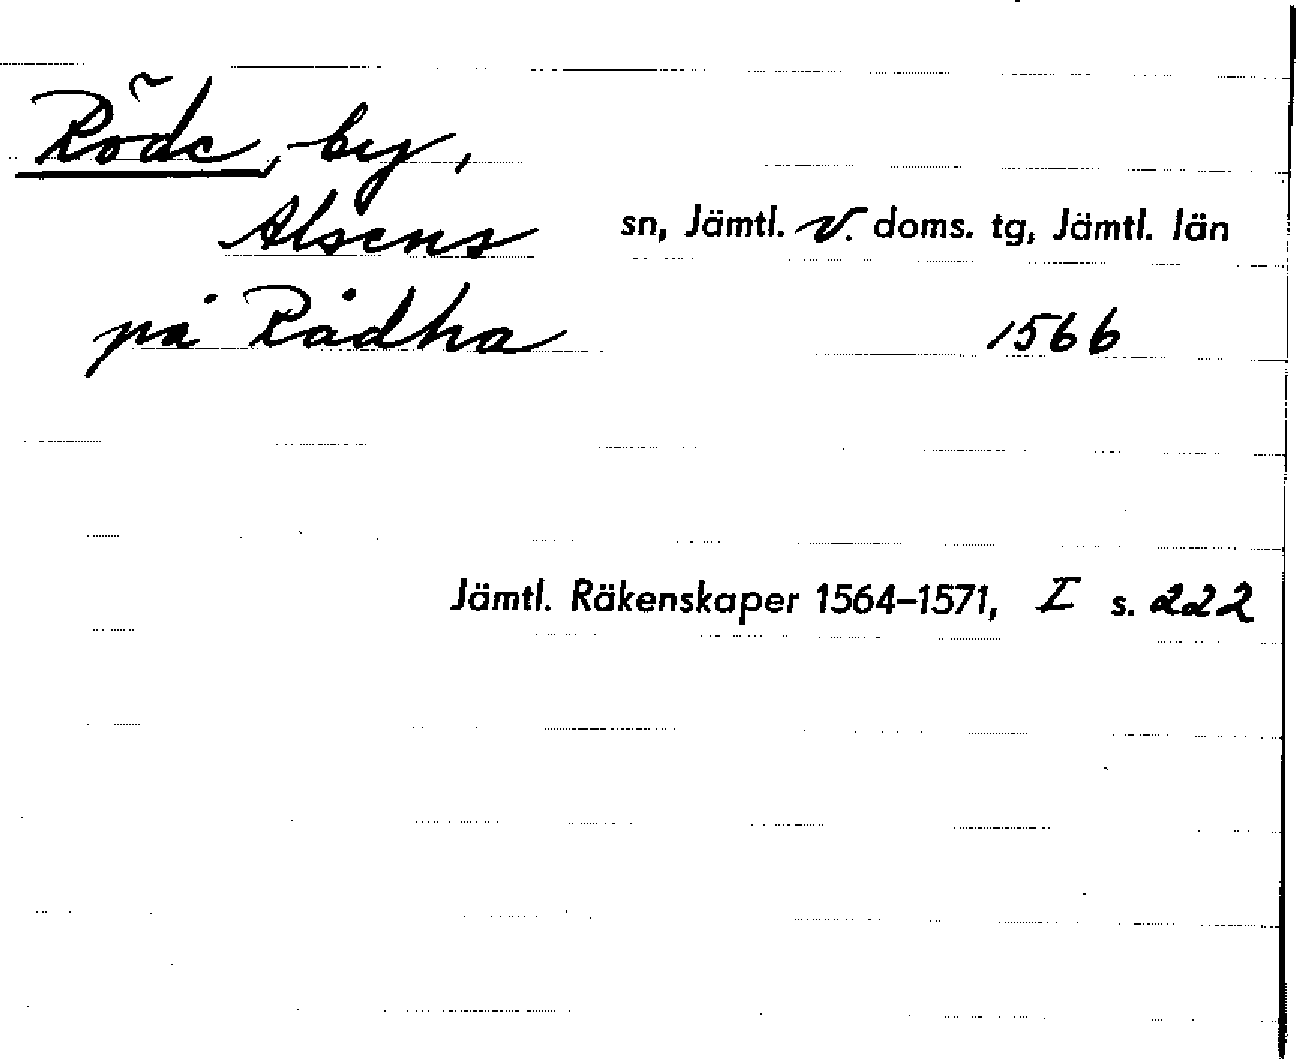 Röde, by,
Alsens sn, Jämtl. v. doms. tg, Jämtl. län
på Rådha 1566
Jämtl. Räkenskaper 1564–1571, I s. 222